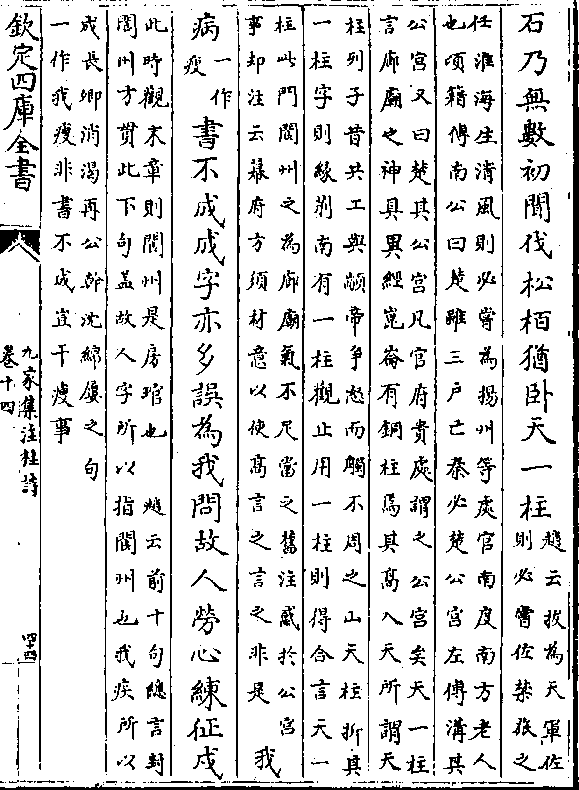 石乃無數初聞伐松柏猶卧天一柱趙云拔為天軍佐則必嘗佐禁旅之
任淮海生清風則必嘗為揚州等處官南度南方老人
也項籍傅南公曰楚雖三户亡秦必楚公宫左傅溝其
公宫又曰楚其公宫凡官府貴處謂之公宫矣天一柱
言廊廟之神異異經崑崙有銅柱焉其髙入天所謂天
柱列子昔共工與顓帝争怒而觸不周之山天柱折其
一柱字則緣荆南有一柱觀止用一柱則得合言天一
柱此門閬州之為廊廟氣不凡當之舊注惑於公宫
事却注云幕府方須材意以使髙言之言之非是 我
病一作瘦書不成成字亦多誤為我問故人勞心練征戍
此時觀末章則閬州是房琯也 趙云前十句總言封
閬州方貫此下句盖故人字所以指閬州也我疾所以
成長卿消渴再公幹沈綿屢之句
一作我瘦非書不成豈干瘦事
欽定四庫全書
九家集注杜詩
卷十四
四十四